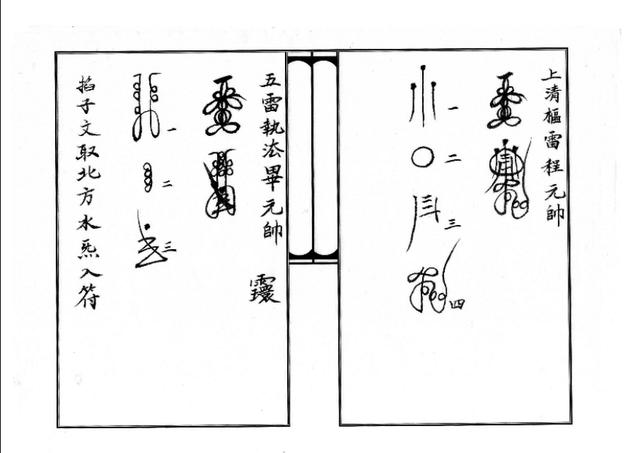 上清樞雷程元帥
一
二
三
四
五雷執法畢元帥
一
二
三
掐子文取北方水炁入符